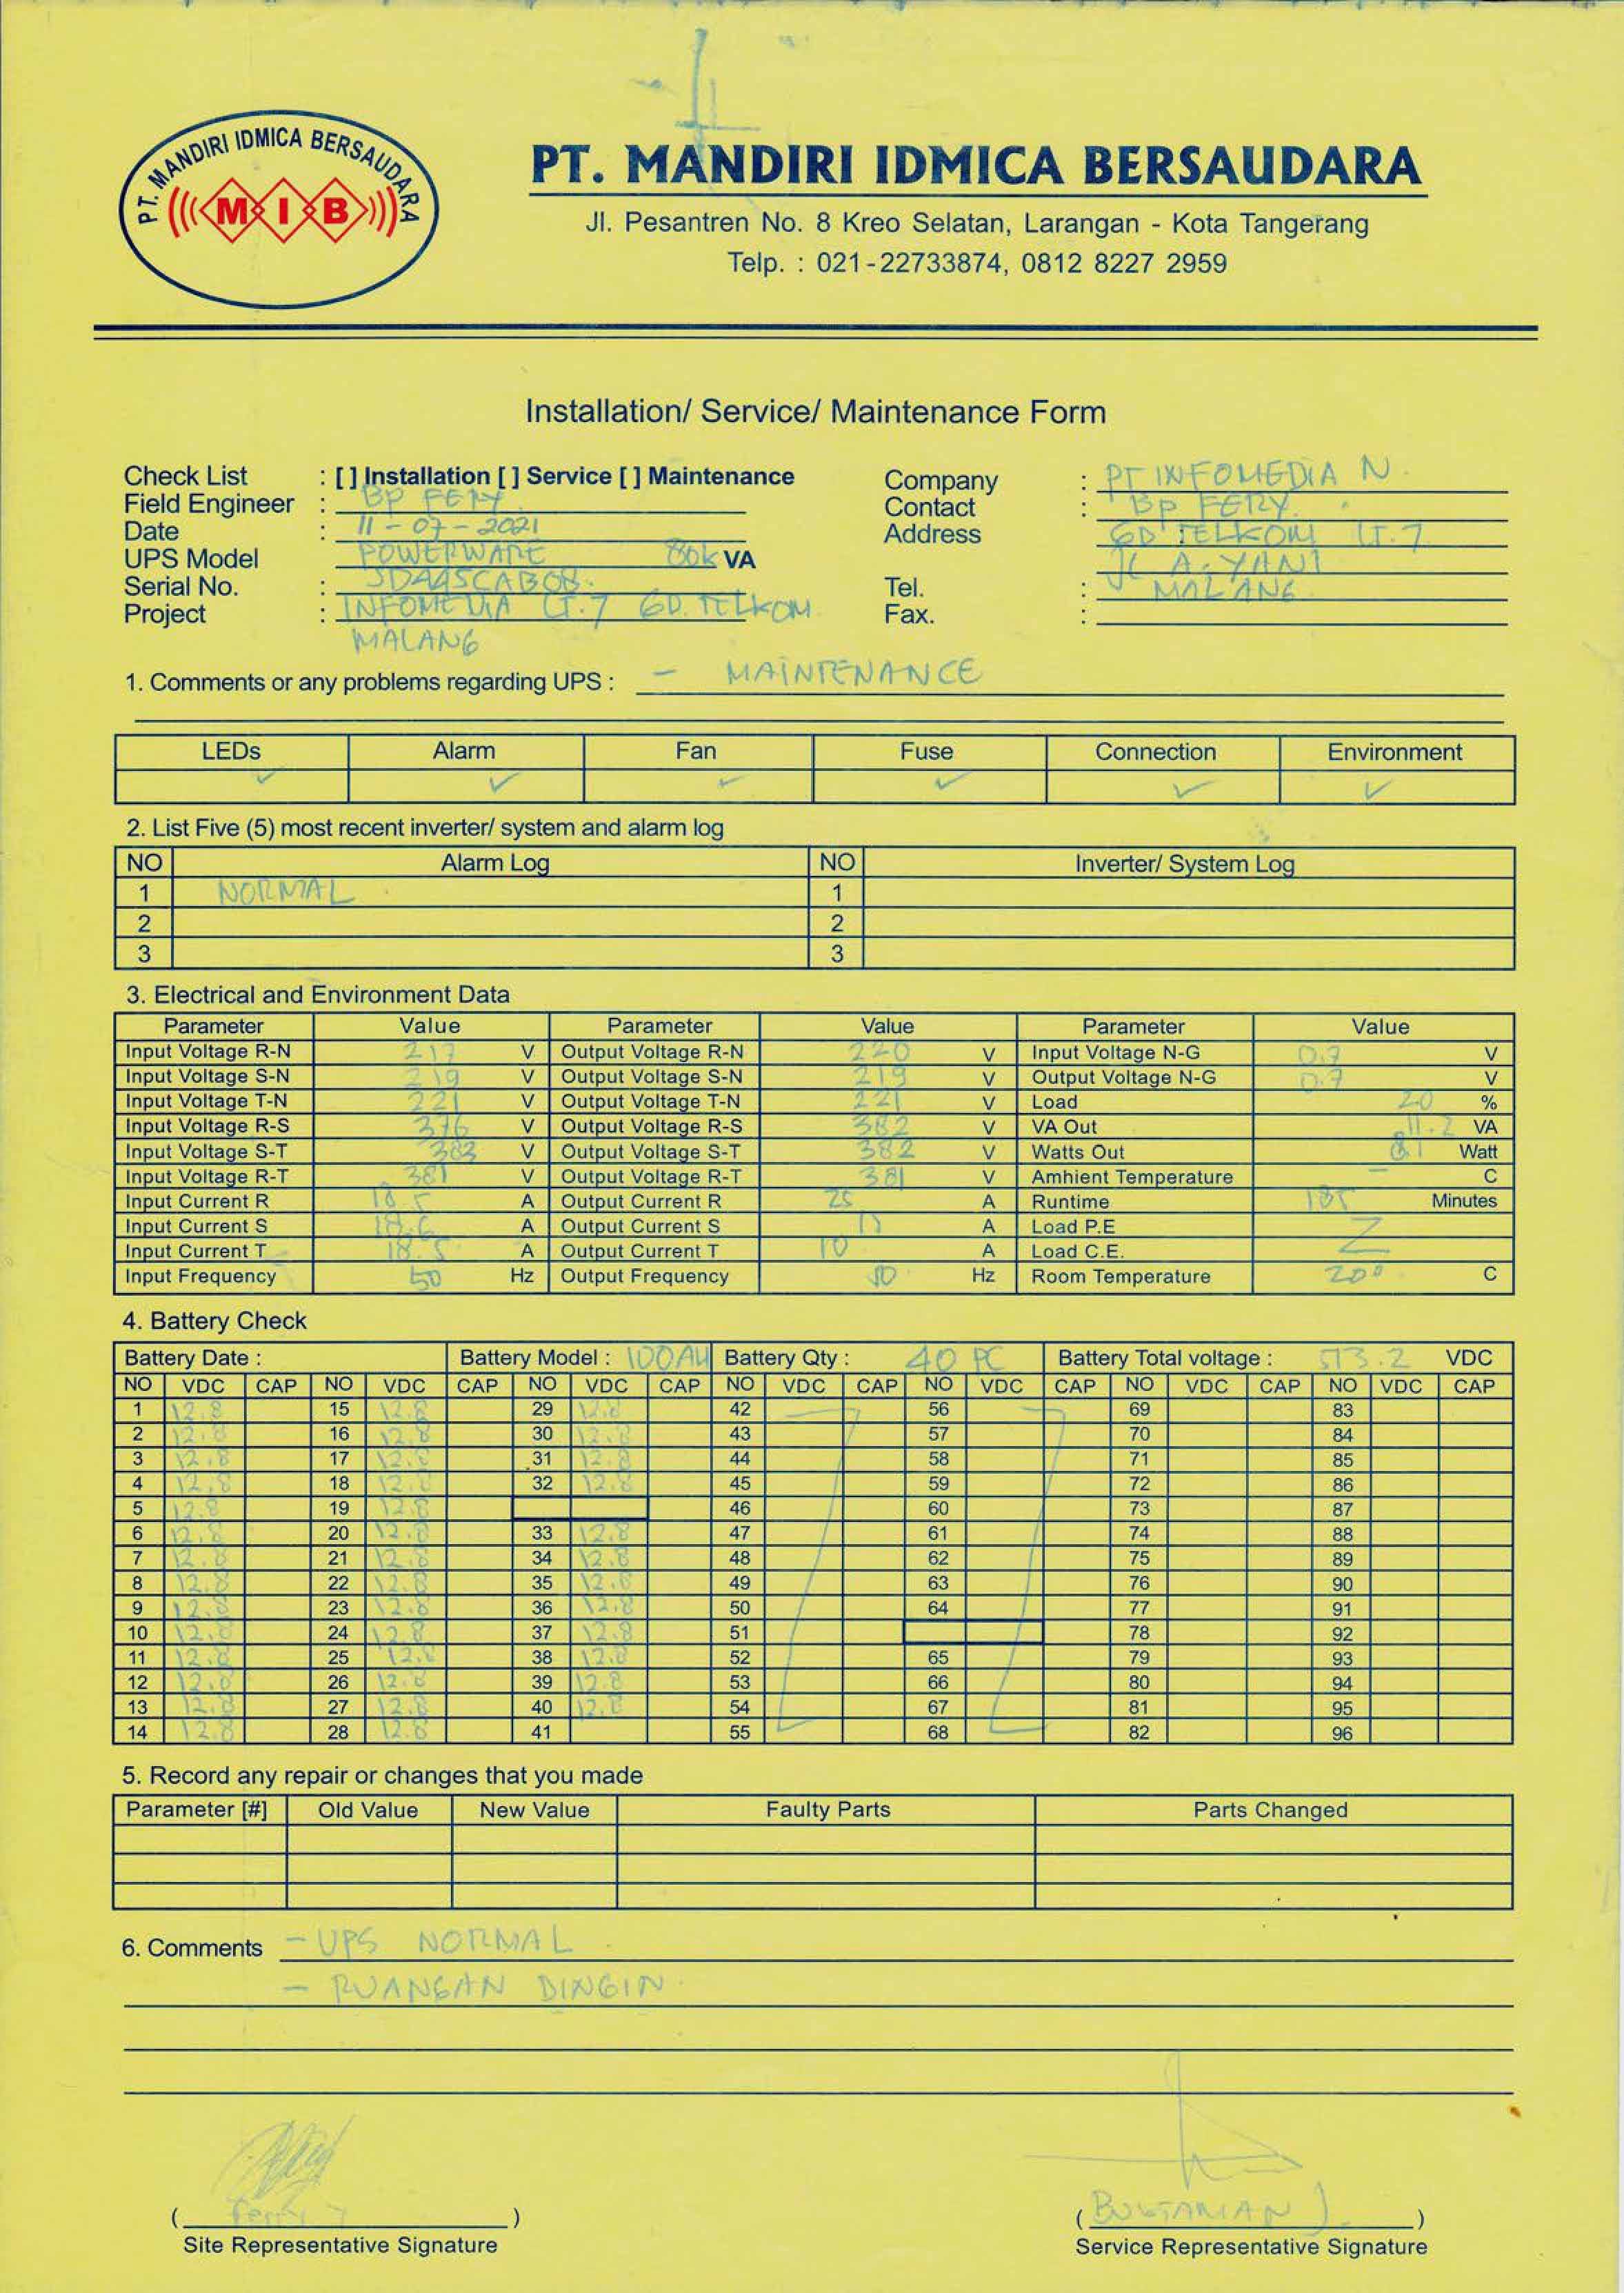 PT. MANDIRI IDMICA BERSAUDARA
MIB
PT. MANDIRI IDMICA BERSAUDARA
Jl. Pesantren No. 8 Kreo Selatan, Larangan - Kota Tangerang
Telp. : 021-22733874, 0812 8227 2959
Installation/ Service/ Maintenance Form
Check List : [ ] Installation [ ] Service [ ] Maintenance
Field Engineer : BP FERY
Date : 11-07-2021
UPS Model POWERWARE 80k VA
Serial No. :
Project : INFOMEDIA LT.7 GD. TELKOM
MALANG
Company : PT INFOMEDIA N.
Contact : BP FERY.
Address GD TELKOM LT.7
JL A. YANI
Tel. : MALANG
Fax. :
1. Comments or any problems regarding UPS : - MAINTENANCE
LEDs Alarm Fan Fuse Connection Environment
✓ ✓ ✓ ✓ ✓ ✓
2. List Five (5) most recent inverter/ system and alarm log
NO Alarm Log NO Inverter/ System Log
1 NORMAL 1
2 2
3 3
3. Electrical and Environment Data
Parameter Value Parameter Value Parameter Value
Input Voltage R-N 217 V Output Voltage R-N 220 V Input Voltage N-G 0.7 V
Input Voltage S-N 219 V Output Voltage S-N 219 V Output Voltage N-G 0.7 V
Input Voltage T-N 221 V Output Voltage T-N 221 V Load 20 %
Input Voltage R-S 376 V Output Voltage R-S 382 V VA Out 11.2 VA
Input Voltage S-T 383 V Output Voltage S-T 382 V Watts Out Watt
Input Voltage R-T 381 V Output Voltage R-T 381 V Amhient Temperature - C
Input Current R 18.5 A Output Current R 25 A Runtime Minutes
Input Current S 18.6 A Output Current S 11 A Load P.E
Input Current T 18.5 A Output Current T 10 A Load C.E.
Input Frequency 50 Hz Output Frequency 50 Hz Room Temperature 20° C
4. Battery Check
Battery Date : Battery Model : 100AH Battery Qty : 40 PC Battery Total voltage : 513.2 VDC
NO VDC CAP NO VDC CAP NO VDC CAP NO VDC CAP NO VDC CAP NO VDC CAP NO VDC CAP
1 12.8 15 12.8 29 12.8 42 56 69 83
2 12.8 16 12.8 30 12.8 43 57 70 84
3 12.8 17 12.8 31 12.8 44 58 71 85
4 12.8 18 12.8 32 12.8 45 59 72 86
5 12.8 19 12.8 46 60 73 87
6 12.8 20 12.8 33 12.8 47 61 74 88
7 12.8 21 12.8 34 12.8 48 62 75 89
8 12.8 22 12.8 35 12.8 49 63 76 90
9 12.8 23 12.8 36 12.8 50 64 77 91
10 12.8 24 12.8 37 12.8 51 78 92
11 12.8 25 12.8 38 12.8 52 65 79 93
12 12.8 26 12.8 39 12.8 53 66 80 94
13 12.8 27 12.8 40 12.8 54 67 81 95
14 12.8 28 12.8 41 55 68 82 96
5. Record any repair or changes that you made
Parameter [#] Old Value New Value Faulty Parts Parts Changed
6. Comments - UPS NORMAL
- RUANGAN DINGIN.
( Ferry )
Site Representative Signature
Service Representative Signature